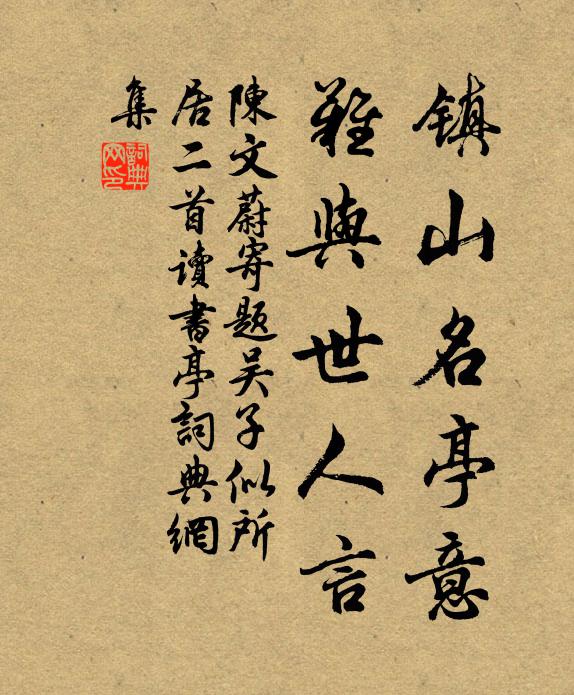 镇山名亭意
難與世人言
陳文蔚寄題吴子似所
居二首讀書亭詞典網
集
詞典
网印